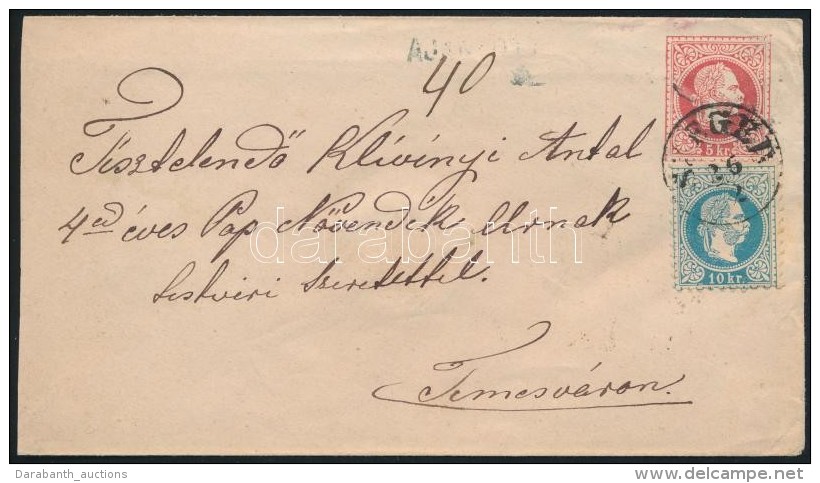 40
5 kr.
Tisztelendő Klivinyi Antal
4ed éves Pap Növendék Urnak
testvéri szeretettel.
Temesváron.
10 kr.
darabanth
Darabanth_auctions
delcampe.net